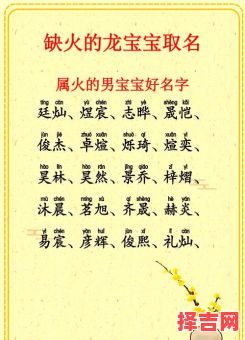 缺火的龙宝宝取名
属火的男宝宝好名字
tíng càn yù chén zhì yè shèng kǎi
廷灿、煜宸、志晔、晟恺、
jùn jié zhuó xuān shuò qí xuān yì
俊杰、卓煊、烁琦、煊奕、
hào lín hào rán jǐng qiáo zǐ yì
昊林、昊然、景乔、梓熠、
mù chén míng xù qí shèng hè yán
沐晨、茗旭、齐晟、赫炎、
yì chén yàn huī jùn xī lǐ càn
易宸、彦辉、俊熙、礼灿、
择吉网